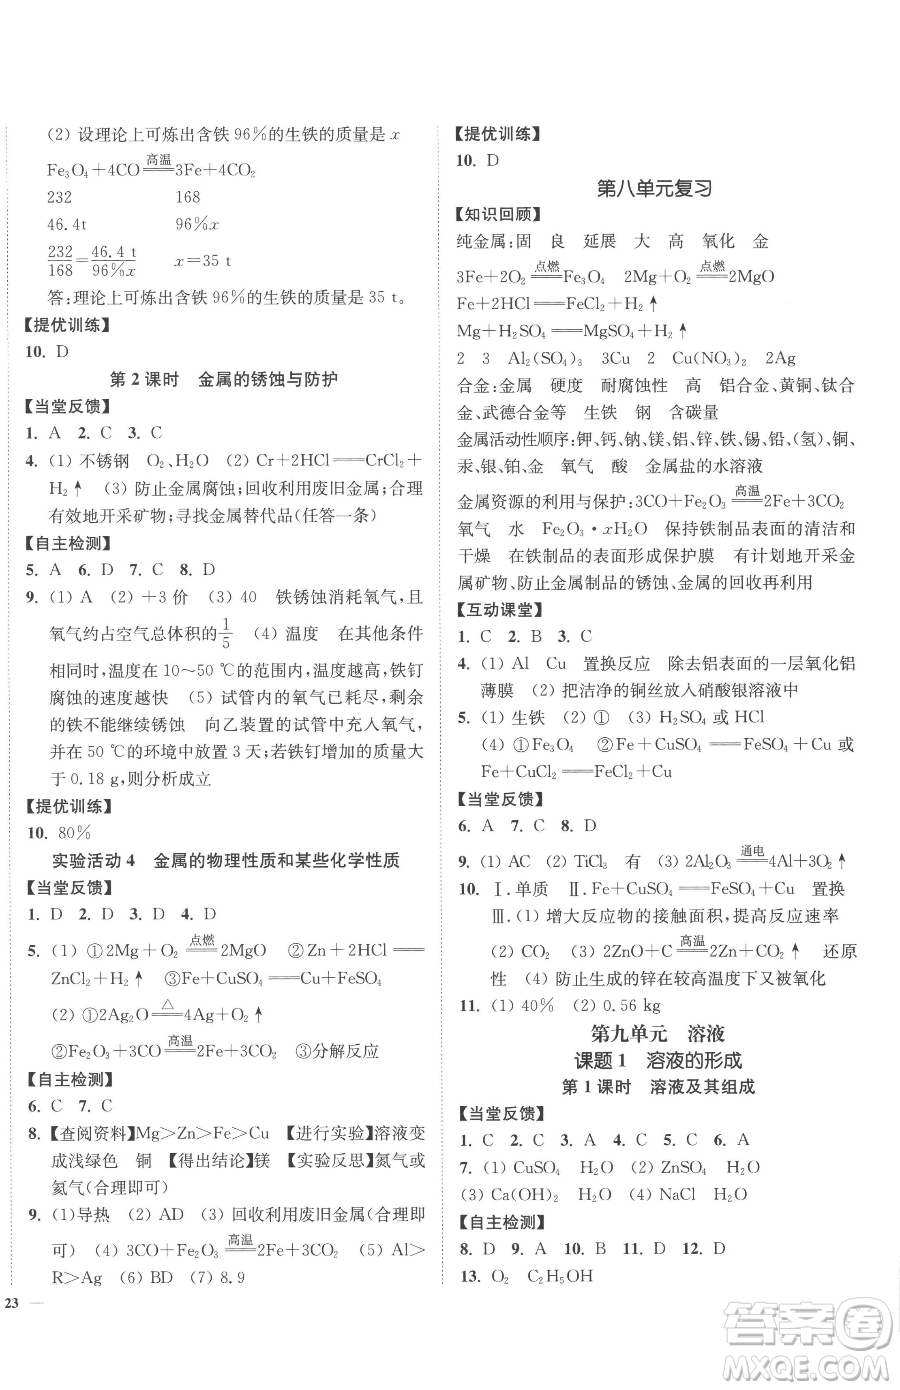 (2) 设理论上可炼出含铁 96%的生铁的质量是 x
Fe₃O₄+4CO 高温 3Fe+4CO₂
232 168
46.4t 96%x
232/168=46.4 t/96%x x=35 t
答:理论上可炼出含铁 96%的生铁的质量是 35 t。
【提优训练】
10. D
第 2 课时 金属的锈蚀与防护
【当堂反馈】
1. A 2. C 3. C
4. (1) 不锈钢 O₂、H₂O (2) Cr+2HCl══CrCl₂+
H₂↑ (3) 防止金属腐蚀;回收利用废旧金属;合理
有效地开采矿物;寻找金属代替品(任答一条)
【自主检测】
5. A 6. D 7. C 8. D
9. (1) A (2) +3 价 (3) 40 铁锈蚀消耗氧气,且
氧气约占空气总体积的1/5 (4) 温度 在其他条件
相同时,温度在 10~50 ℃的范围内,温度越高,铁钉
腐蚀的速度越快 (5) 试管内的氧气已耗尽,剩余
的铁不能继续锈蚀 向乙装置的试管中充入氧气,
并在 50 ℃的环境中放置 3 天;若铁钉增加的质量大
于 0.18 g,则分析成立
【提优训练】
10. 80%
实验活动 4 金属的物理性质和某些化学性质
【当堂反馈】
1. D 2. D 3. D 4. D
5. (1) ①2Mg+O₂ 点燃 2MgO ②Zn+2HCl══
ZnCl₂+H₂↑ ③Fe+CuSO₄══Cu+FeSO₄
(2) ①2Ag₂O △ 4Ag+O₂↑
②Fe₂O₃+3CO 高温 2Fe+3CO₂ ③分解反应
【自主检测】
6. C 7. C
8. 【查阅资料】Mg>Zn>Fe>Cu 【进行实验】溶液变
成浅绿色 铜 【得出结论】镁 【实验反思】氮气或
氦气(合理即可)
9. (1)导热 (2) AD (3) 回收利用废旧金属(合理即
可) (4) 3CO+Fe₂O₃ 高温 2Fe+3CO₂ (5) Al>
R>Ag (6) BD (7) 8.9
23
【提优训练】
10. D
第八单元复习
【知识回顾】
纯金属:固 良 延展 大 高 氧化 金
3Fe+2O₂ 点燃 Fe₃O₄ 2Mg+O₂ 点燃 2MgO
Fe+2HCl══FeCl₂+H₂↑
Mg+H₂SO₄══MgSO₄+H₂↑
2 3 Al₂(SO₄)₃ 3Cu 2 Cu(NO₃)₂ 2Ag
合金:金属 硬度 耐腐蚀性 高 铝合金、黄铜、钛合
金、武德合金等 生铁 钢 含碳量
金属活动性顺序:钾、钙、钠、镁、铝、锌、铁、锡、铅、(氢)、铜、
汞、银、铂、金 氧气 酸 金属盐的水溶液
金属资源的利用与保护:3CO+Fe₂O₃ 高温 2Fe+3CO₂
氧气 水 Fe₂O₃·xH₂O 保持铁制品表面的清洁和
干燥 在铁制品的表面形成保护膜 有计划地开采金
属矿物、防止金属制品的锈蚀、金属回收再利用
【互动课堂】
1. C 2. B 3. C
4. (1) Al Cu 置换反应 除去铝表面的一层氧化铝
薄膜 (2) 把洁净的铜丝放入硝酸银溶液中
5. (1) 生铁 (2) ① (3) H₂SO₄ 或 HCl
(4) ①Fe₃O₄ ②Fe+CuSO₄══FeSO₄+Cu 或
Fe+CuCl₂══FeCl₂+Cu
【当堂反馈】
6. A 7. C 8. D
9. (1) AC (2) TiCl₃ 有 (3) 2Al₂O₃ 通电 4Al+3O₂↑
10. Ⅰ.单质 Ⅱ.Fe+CuSO₄══FeSO₄+Cu 置换
Ⅲ.(1) 增大反应物的接触面积,提高反应速率
(2) CO₂ (3) 2ZnO+C 高温 2Zn+CO₂↑ 还原
性 (4) 防止生成的锌在较高温度下又被氧化
11. (1) 40% (2) 0.56 kg
第九单元 溶液
课题 1 溶液的形成
第 1 课时 溶液及其组成
【当堂反馈】
1. C 2. C 3. A 4. C 5. C 6. A
7. (1) CuSO₄ H₂O (2) ZnSO₄ H₂O
(3) Ca(OH)₂ H₂O (4) NaCl H₂O
【自主检测】
8. D 9. A 10. B 11. D 12. D
13. O₂ C₂H₅OH
答案圈
MXQE.COM